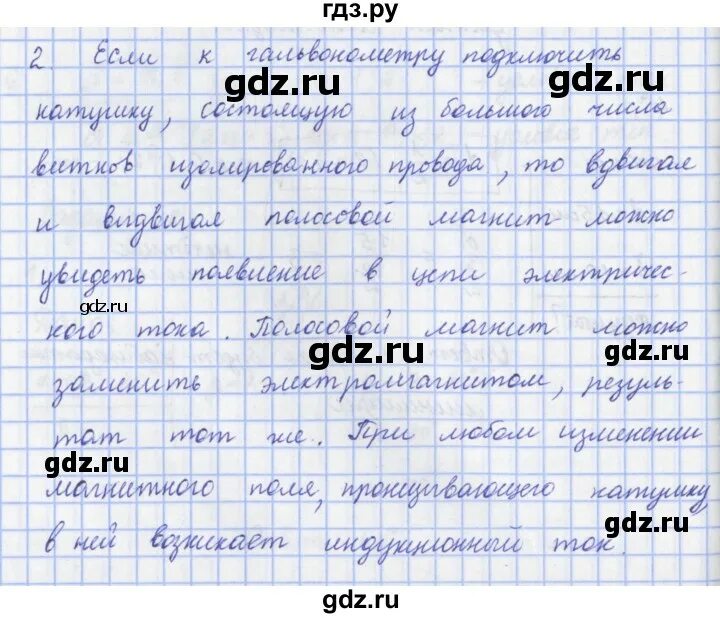 гдз.ру
2. Если к гальвонометру подключить
gdz.ru
gdz.ru
катушку, состоящую из большого числа
витков изолированного провода, то вдвигая
gdz.ru
gdz.ru
и выдвигая полосовой магнит можно
увидеть появление в цепи электричес-
gdz.ru
кого тока. Полосовой магнит можно
gdz.ru
gdz.ru
заменить электромагнитом, резуль-
тат тот же. При любом изменении
gdz.ru
магнитного поля, пронизывающего катушку
gdz.ru
в ней возникает индукционный ток.
gdz.ru